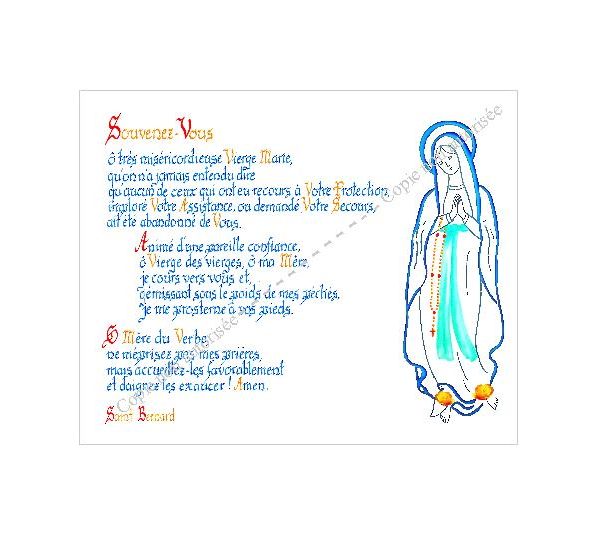 Souvenez-Vous
ô très miséricordieuse Vierge Marie,
qu'on n'a jamais entendu dire
qu'aucun de ceux qui ont eu recours à Votre Protection,
imploré Votre Assistance, ou demandé Votre Secours,
ait été abandonné de Vous.
Animé d'une pareille confiance,
ô Vierge des vierges, ô ma Mère,
je cours vers vous et,
gémissant sous le poids de mes péchés,
je me prosterne à vos pieds.
Ô Mère du Verbe,
ne méprisez pas mes prières,
mais accueillez-les favorablement
et daignez les exaucer ! Amen.
Saint Bernard